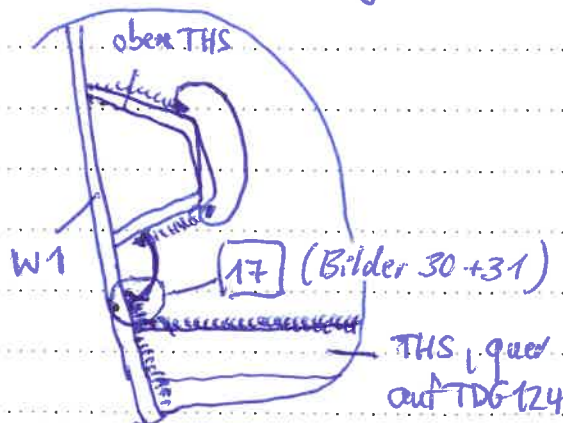 oben THS
W1
17 (Bilder 30+31)
THS, quer
auf TDG 124